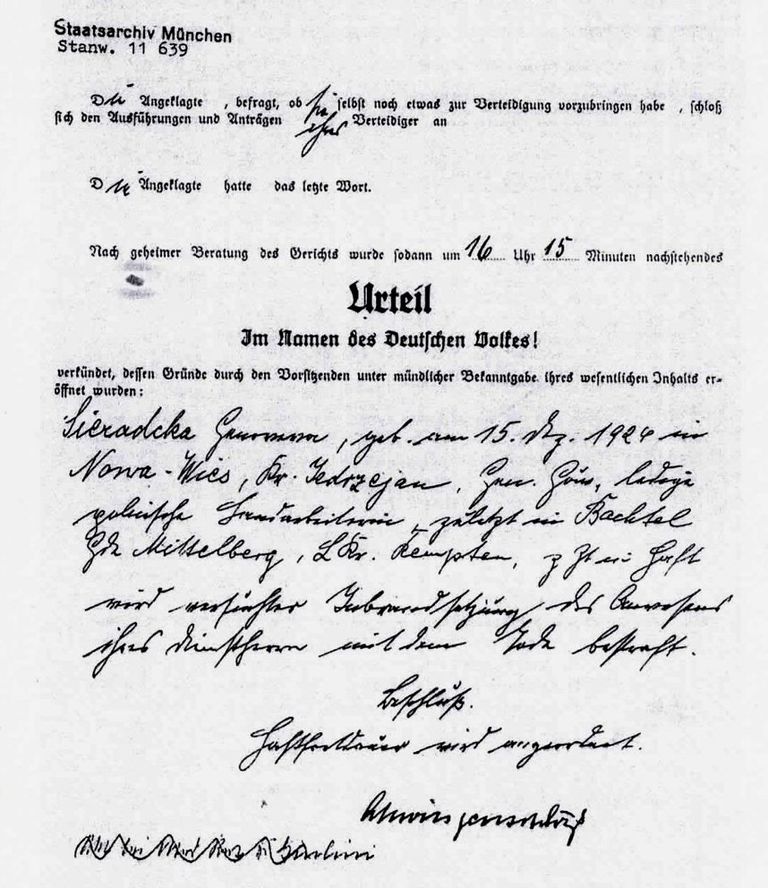 Staatsarchiv München
Stanw. 11 639
Die Angeklagte , befragt, ob sie selbst noch etwas zur Verteidigung vorzubringen habe , schloß
sich den Ausführungen und Anträgen ihres Verteidiger an
Die Angeklagte hatte das letzte Wort.
Nach geheimer Beratung des Gerichts wurde sodann um 16 Uhr 15 Minuten nachstehendes
Urteil
Im Namen des Deutschen Volkes!
verkündet, dessen Gründe durch den Vorsitzenden unter mündlicher Bekanntgabe ihres wesentlichen Inhalts er-
öffnet wurden:
Sieradcka Genoveva, geb. am 15. Dez. 1924 in
Nowa-Wies, Kr. Jedrzejan, Gen. Gouv., ledige
polnische Landarbeiterin, zuletzt in Bachtel
Gde Mittelberg, LKr. Kempten, z Zt in Haft
wird versuchter Inbrandsetzung des Anwesens
ihres Dienstherrn mit dem Tode bestraft.
Beschluß.
Haftfortdauer wird angeordnet.